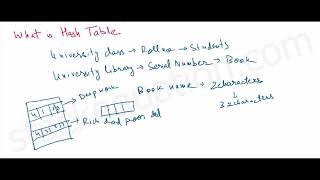 What is Hash Table
University class → Rollno → Students
University library → Serial Number → Book
Deep work
Book name → 2 characters
↓
3 characters
Rich dad poor dad